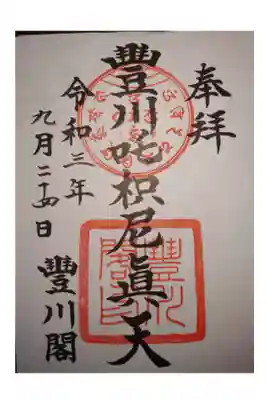 奉拝
豊川吒枳尼眞天
令和三年
九月二十四日
豊川閣